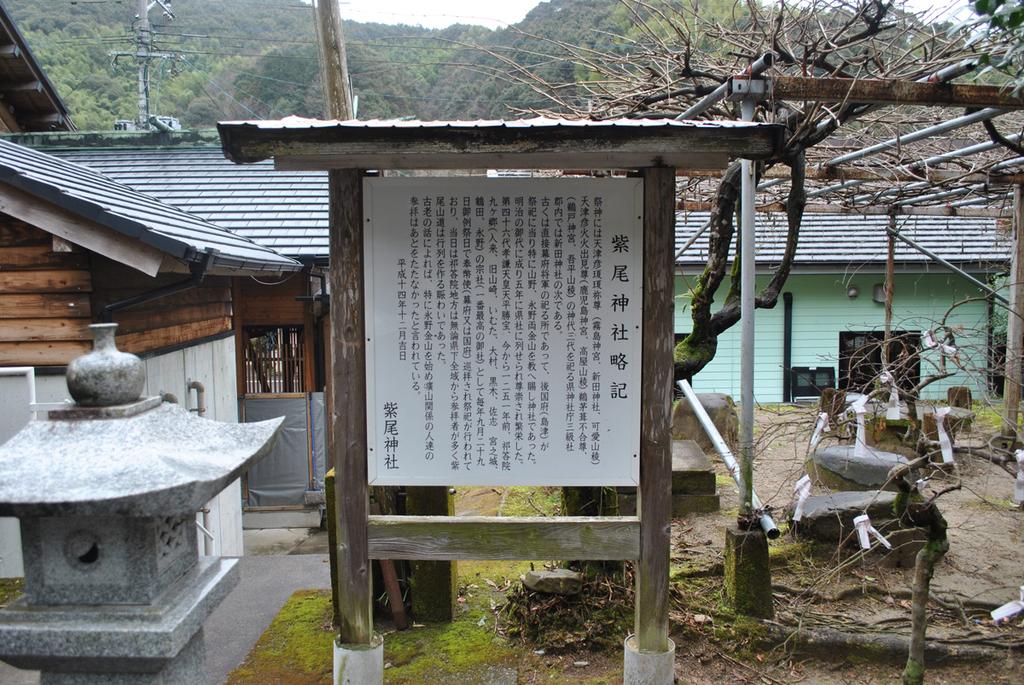 紫尾神社略記
祭神には天津彦彦瓊瓊杵尊(霧島神宮、新田神社、可愛山稜)
天津彦火火出見尊(鹿児島神宮、高屋山稜)鵜茅葺不合尊、
(鵜戸神宮、吾平山稜)の神代三代を祀る県神社庁三級社
郡内では新田神社の次である。
古くは直接幕府将軍の祀る所であって、後国府(島津)が
祭祀に当り特に山野、永野両金山を教へ賜し神社であった。
明治の御代に成り五年に県社に列せられ尊崇され繁栄した。
第四十六代孝謙天皇天平勝宝、今から一二五一年前、祁答院
九ヶ郷(入来、旧山崎、いむた、大村、黒木、佐志、宮之城、
鶴田、永野)の宗社(一番最高の御社)として毎年九月二十九
日御例祭日で奉幣使(幕府又は国府)巡拝され祭祀が行われて
おり、当日は祁答院地方は無論県下全域から参拝者が多く紫
尾山道は行列を作る賑わいであった。
古老の話によれば、特に永野金山を始め礦山関係の人達の
参拝はあとをたたなかったと言われている。
平成十四年十二月吉日
紫尾神社